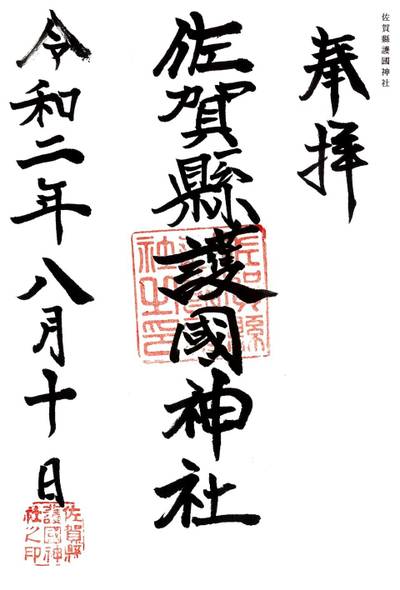 佐賀縣護國神社
奉拝
佐賀縣護國神社
佐賀縣
護國神
社之印
令和二年八月十日
佐賀縣
護國神
社之印